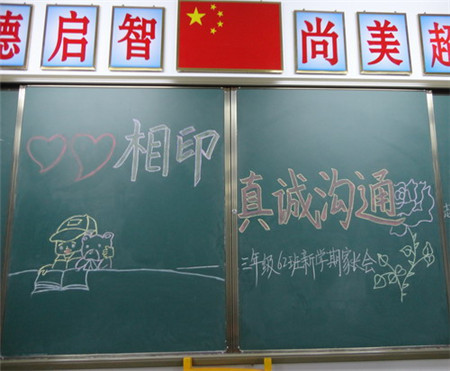 德启智 尚美超
相印
真诚沟通
三年级62班新学期家长会